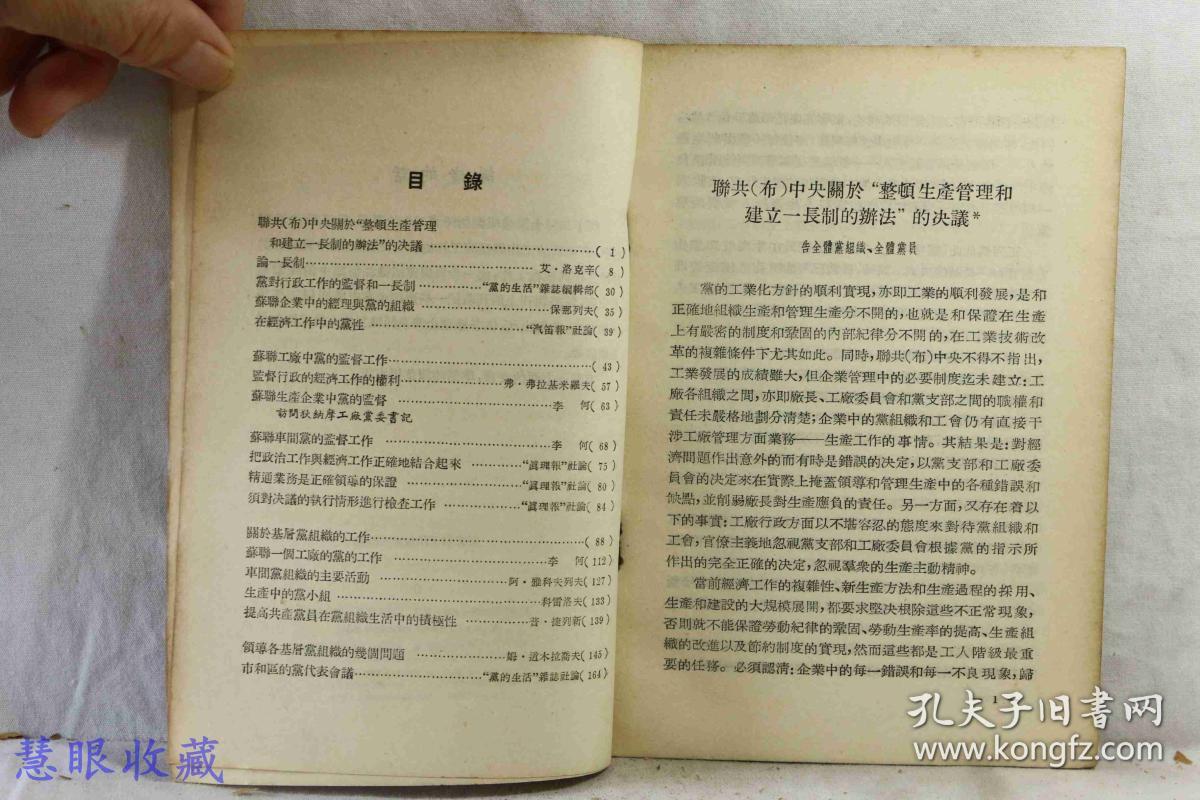 目 錄
聯共(布)中央關於“整頓生產管理
和建立一長制的辦法”的决議 ……(1)
論一長制 …… 艾·洛克辛(8)
黨對行政工作的監督和一長制 ……“黨的生活”雜誌編輯部(30)
蘇聯企業中的經理與黨的組織 …… 保那列夫(35)
在經濟工作中的黨性 ……“汽笛報”社論(39)
蘇聯工廠中黨的監督工作 ……(43)
監督行政的經濟工作的權利 …… 弗·弗拉基米羅夫(57)
蘇聯生產企業中黨的監督 …… 李 何(63)
訪問狄納摩工廠黨委書記
蘇聯車間黨的監督工作 …… 李 何(68)
把政治工作與經濟工作正確地結合起來 ……“眞理報”社論(75)
精通業務是正確領導的保證 ……“眞理報”社論(80)
須對决議的執行情形進行檢查工作 ……“眞理報”社論(84)
關於基層黨組織的工作 ……(88)
蘇聯一個工廠的黨的工作 …… 李 何(112)
車間黨組織的主要活動 …… 阿·雅科夫列夫(127)
生產中的黨小組 …… 科雷洛夫(133)
提高共產黨員在黨組織生活中的積極性 …… 普·捷列新(139)
領導各基層黨組織的幾個問題 …… 姆·道木拉喬夫(145)
市和區的黨代表會議 ……“黨的生活”雜誌社論(164)
聯共(布)中央關於“整頓生產管理和
建立一長制的辦法”的决議*
告全體黨組織、全體黨員
黨的工業化方針的順利實現，亦即工業的順利發展，是和
正確地組織生產和管理生產分不開的，也就是和保證在生產
上有嚴密的制度和鞏固的內部紀律分不開的，在工業技術改
革的複雜條件下尤其如此。同時，聯共(布)中央不得不指出，
工業發展的成績雖大，但企業管理中的必要制度迄未建立：工
廠各組織之間，亦即廠長、工廠委員會和黨支部之間的職權和
責任未嚴格地劃分清楚；企業中的黨組織和工會仍有直接干
涉工廠管理方面業務——生產工作的事情。其結果是：對經
濟問題作出意外的而有時是錯誤的决定，以黨支部和工廠委
員會的决定來在實際上掩蓋領導和管理生產中的各種錯誤和
缺點，並削弱廠長對生產應負的責任。另一方面，又存在着以
下的事實：工廠行政方面以不堪容忍的態度來對待黨組織和
工會，官僚主義地忽視黨支部和工廠委員會根據黨的指示所
作出的完全正確的决定，忽視羣衆的生產主動精神。
當前經濟工作的複雜性、新生產方法和生產過程的採用、
生產和建設的大規模展開，都要求堅决根除這些不正常現象，
否則就不能保證勞動紀律的鞏固、勞動生產率的提高、生產組
織的改進以及節約制度的實現，然而這些都是工人階級最重
要的任務。必須認清：企業中的每一錯誤和每一不良現象，歸
1
孔夫子旧书网
www.kongfz.com
慧眼收藏